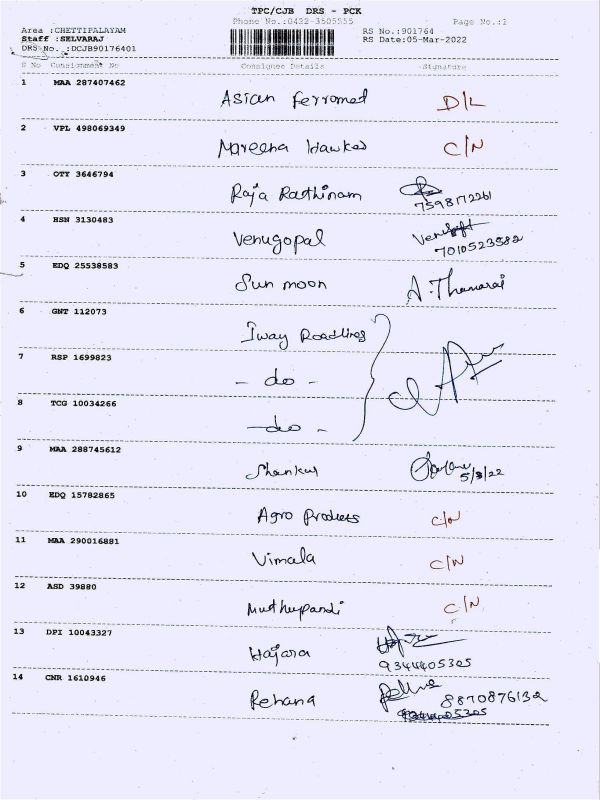 TPC/CJB DRS - PCK
Phone No.:0422-3505555 Page No.:1
Area :CHETTIPALAYAM RS No.:901764
Staff :SELVARAJ RS Date:05-Mar-2022
DRS No. :DCJB90176401
S No Consignment No Consignee Details Signature
1 MAA 287407462 Asian Ferromed D/L
2 VPL 498069349 Mareena Hawkes C/N
3 OTY 3646794 Raja Rathinam
7598172261
4 HSN 3130483 Venugopal
7010523582
5 EDQ 25538583 Sun moon A. Thamarai
6 GNT 112073 Iway Roadlings
7 RSP 1699823 - do -
8 TCG 10034266 - do -
9 MAA 288745612 Shankar
5/3/22
10 EDQ 15782865 Agro Products C/N
11 MAA 290016881 Vimala C/N
12 ASD 39880 Muthupandi C/N
13 DPI 10043327 Hajara
9344405305
14 CNR 1610946 Rehana
8870876132